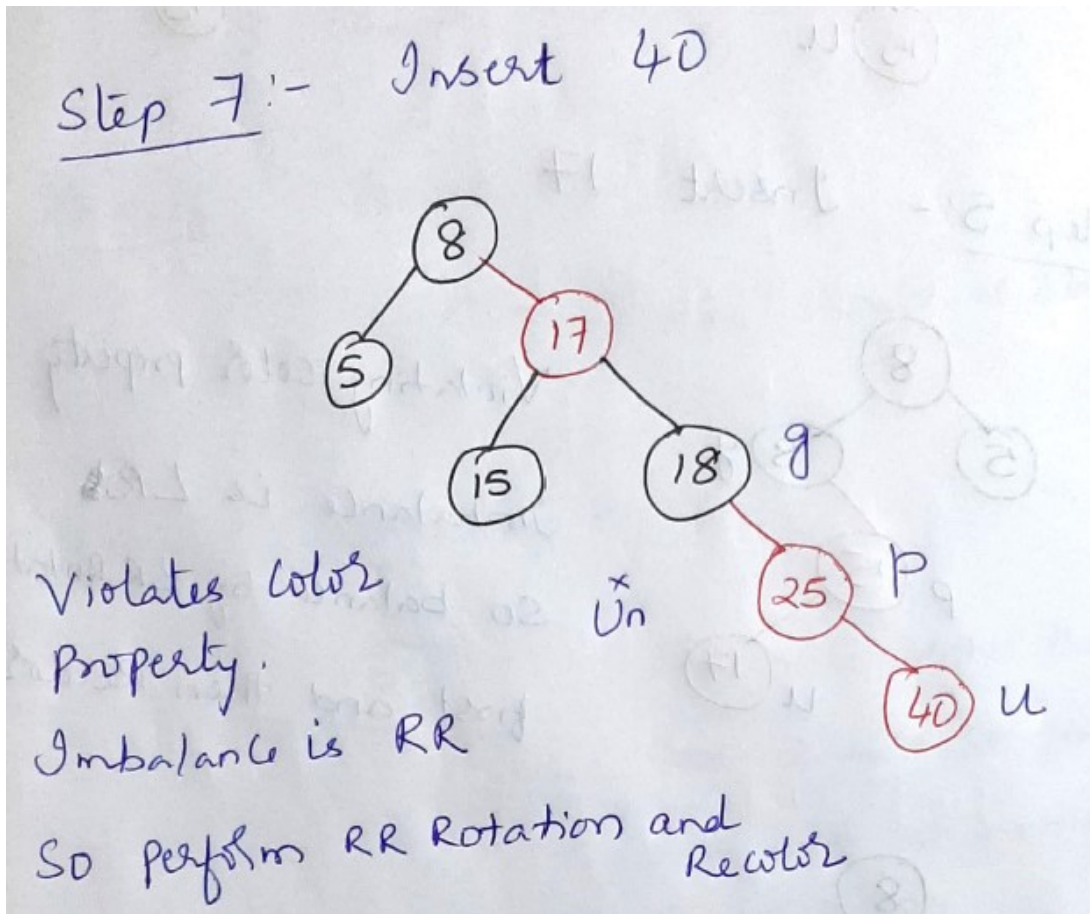 Step 7:- Insert 40
8
17
5
15
18 g
25 p
Un
40 u
Violates Color
Property.
Imbalance is RR
So perform RR Rotation and
Recolor